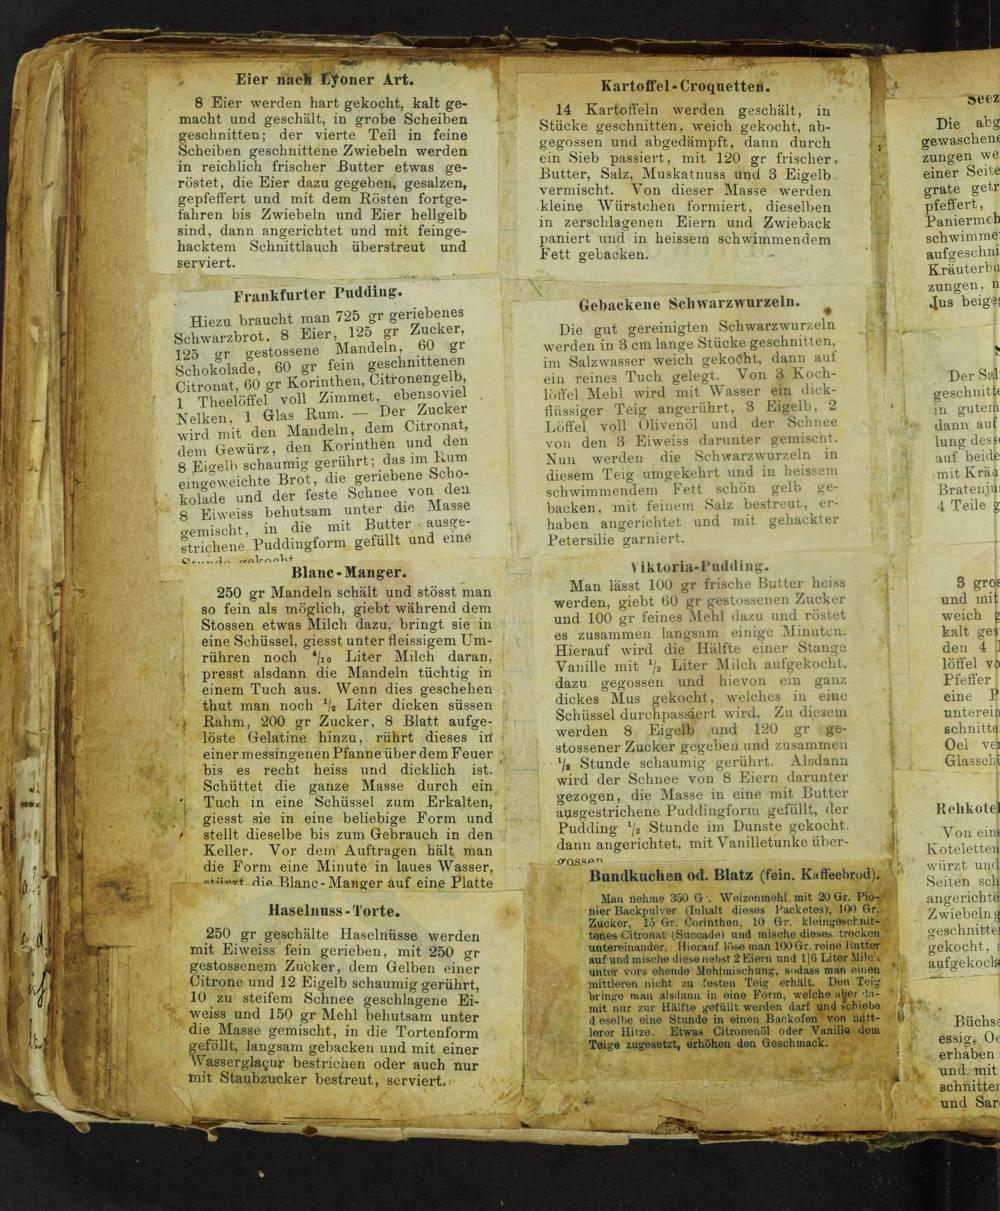 Eier nach Lyoner Art.
8 Eier werden hart gekocht, kalt ge-
macht und geschält, in grobe Scheiben
geschnitten; der vierte Teil in feine
Scheiben geschnittene Zwiebeln werden
in reichlich frischer Butter etwas ge-
röstet, die Eier dazu gegeben, gesalzen,
gepfeffert und mit dem Rösten fortge-
fahren bis Zwiebeln und Eier hellgelb
sind, dann angerichtet und mit feinge-
hacktem Schnittlauch überstreut und
serviert.
Frankfurter Pudding.
Hiezu braucht man 725 gr geriebenes
Schwarzbrot. 8 Eier, 125 gr Zucker,
125 gr gestossene Mandeln, 60 gr
Schokolade, 60 gr fein geschnittenen
Citronat, 60 gr Korinthen, Citronengelb,
1 Theelöffel voll Zimmet, ebensoviel
Nelken, 1 Glas Rum. — Der Zucker
wird mit den Mandeln, dem Citronat,
dem Gewürz, den Korinthen und den
8 Eigelb schaumig gerührt; das im Rum
eingeweichte Brot, die geriebene Scho-
kolade und der feste Schnee von den
8 Eiweiss behutsam unter die Masse
gemischt, in die mit Butter ausge-
strichene Puddingform gefüllt und eine
Stunde gekocht
Blanc-Manger.
250 gr Mandeln schält und stösst man
so fein als möglich, giebt während dem
Stossen etwas Milch dazu, bringt sie in
eine Schüssel, giesst unter fleissigem Um-
rühren noch 4/10 Liter Milch daran,
presst alsdann die Mandeln tüchtig in
einem Tuch aus. Wenn dies geschehen
thut man noch 1/2 Liter dicken süssen
Rahm, 200 gr Zucker, 8 Blatt aufge-
löste Gelatine hinzu, rührt dieses in
einer messingenen Pfanne über dem Feuer
bis es recht heiss und dicklich ist.
Schüttet die ganze Masse durch ein
Tuch in eine Schüssel zum Erkalten,
giesst sie in eine beliebige Form und
stellt dieselbe bis zum Gebrauch in den
Keller. Vor dem Auftragen hält man
die Form eine Minute in laues Wasser,
stürzt die Blanc-Manger auf eine Platte
Haselnuss-Torte.
250 gr geschälte Haselnüsse werden
mit Eiweiss fein gerieben, mit 250 gr
gestossenem Zucker, dem Gelben einer
Citrone und 12 Eigelb schaumig gerührt,
10 zu steifem Schnee geschlagene Ei-
weiss und 150 gr Mehl behutsam unter
die Masse gemischt, in die Tortenform
gefüllt, langsam gebacken und mit einer
Wasserglaçur bestrichen oder auch nur
mit Staubzucker bestreut, serviert.
Kartoffel-Croquetten.
14 Kartoffeln werden geschält, in
Stücke geschnitten, weich gekocht, ab-
gegossen und abgedämpft, dann durch
ein Sieb passiert, mit 120 gr frischer
Butter, Salz, Muskatnuss und 3 Eigelb
vermischt. Von dieser Masse werden
kleine Würstchen formiert, dieselben
in zerschlagenen Eiern und Zwieback
paniert und in heissem schwimmendem
Fett gebacken.
Gebackene Schwarzwurzeln.
Die gut gereinigten Schwarzwurzeln
werden in 3 cm lange Stücke geschnitten,
im Salzwasser weich gekocht, dann auf
ein reines Tuch gelegt. Von 3 Koch-
löffel Mehl wird mit Wasser ein dick-
flüssiger Teig angerührt, 3 Eigelb, 2
Löffel voll Olivenöl und der Schnee
von den 3 Eiweiss darunter gemischt.
Nun werden die Schwarzwurzeln in
diesem Teig umgekehrt und in heissem
schwimmendem Fett schön gelb ge-
backen, mit feinem Salz bestreut, er-
haben angerichtet und mit gehackter
Petersilie garniert.
Viktoria-Pudding.
Man lässt 100 gr frische Butter heiss
werden, giebt 60 gr gestossenen Zucker
und 100 gr feines Mehl dazu und röstet
es zusammen langsam einige Minuten.
Hierauf wird die Hälfte einer Stange
Vanille mit 1/2 Liter Milch aufgekocht.
dazu gegossen und hievon ein ganz
dickes Mus gekocht, welches in eine
Schüssel durchpassiert wird. Zu diesem
werden 8 Eigelb und 120 gr ge-
stossener Zucker gegeben und zusammen
1/2 Stunde schaumig gerührt. Alsdann
wird der Schnee von 8 Eiern darunter
gezogen, die Masse in eine mit Butter
ausgestrichene Puddingform gefüllt, der
Pudding 1/2 Stunde im Dunste gekocht.
dann angerichtet, mit Vanilletunke über-
gossen
Bundkuchen od. Blatz (fein. Kaffeebrod).
Man nehme 350 G . Weizenmehl mit 20 Gr. Pio-
nier Backpulver (Inhalt dieses Packetes), 100 Gr.
Zucker, 15 Gr. Corinthen, 10 Gr. kleingeschnit-
tenes Citronat (Succade) und mische dieses trocken
untereinander. Hierauf löse man 100 Gr. reine Butter
auf und mische diese nebst 2 Eiern und 1|6 Liter Milc
unter vors ehende Mehlmischung, sodass man einen
mittleren nicht zu festen Teig erhält. Den Teig
bringe man alsdann in eine Form, welche aber da-
mit nur zur Hälfte gefüllt werden darf und schiebe
d eselbe eine Stunde in einen Backofen von mitt-
lerer Hitze. Etwas Citronenöl oder Vanille dem
Teige zugesetzt, erhöhen den Geschmack.
Seez
Die abg
gewaschene
zungen we
einer Seite
grate getr
pfeffert,
Paniermeh
schwimme
aufgeschni
Kräuterbu
zungen, n
Jus beige
Der Sal
geschnitte
in gutem
dann auf
lung dess
auf beide
mit Kräu
Bratenju
4 Teile
3 gros
und mit
weich
kalt ge
den 4
löffel vo
Pfeffer
eine P
unterein
schnitte
Oel ver
Glassch
Rehkotel
Von eine
Koteletten
würzt und
Seiten sch
angerichte
Zwiebeln
geschnitte
gekocht,
aufgekoch
Büchse
essig, Oe
erhaben
und mit
schnitten
und Sar